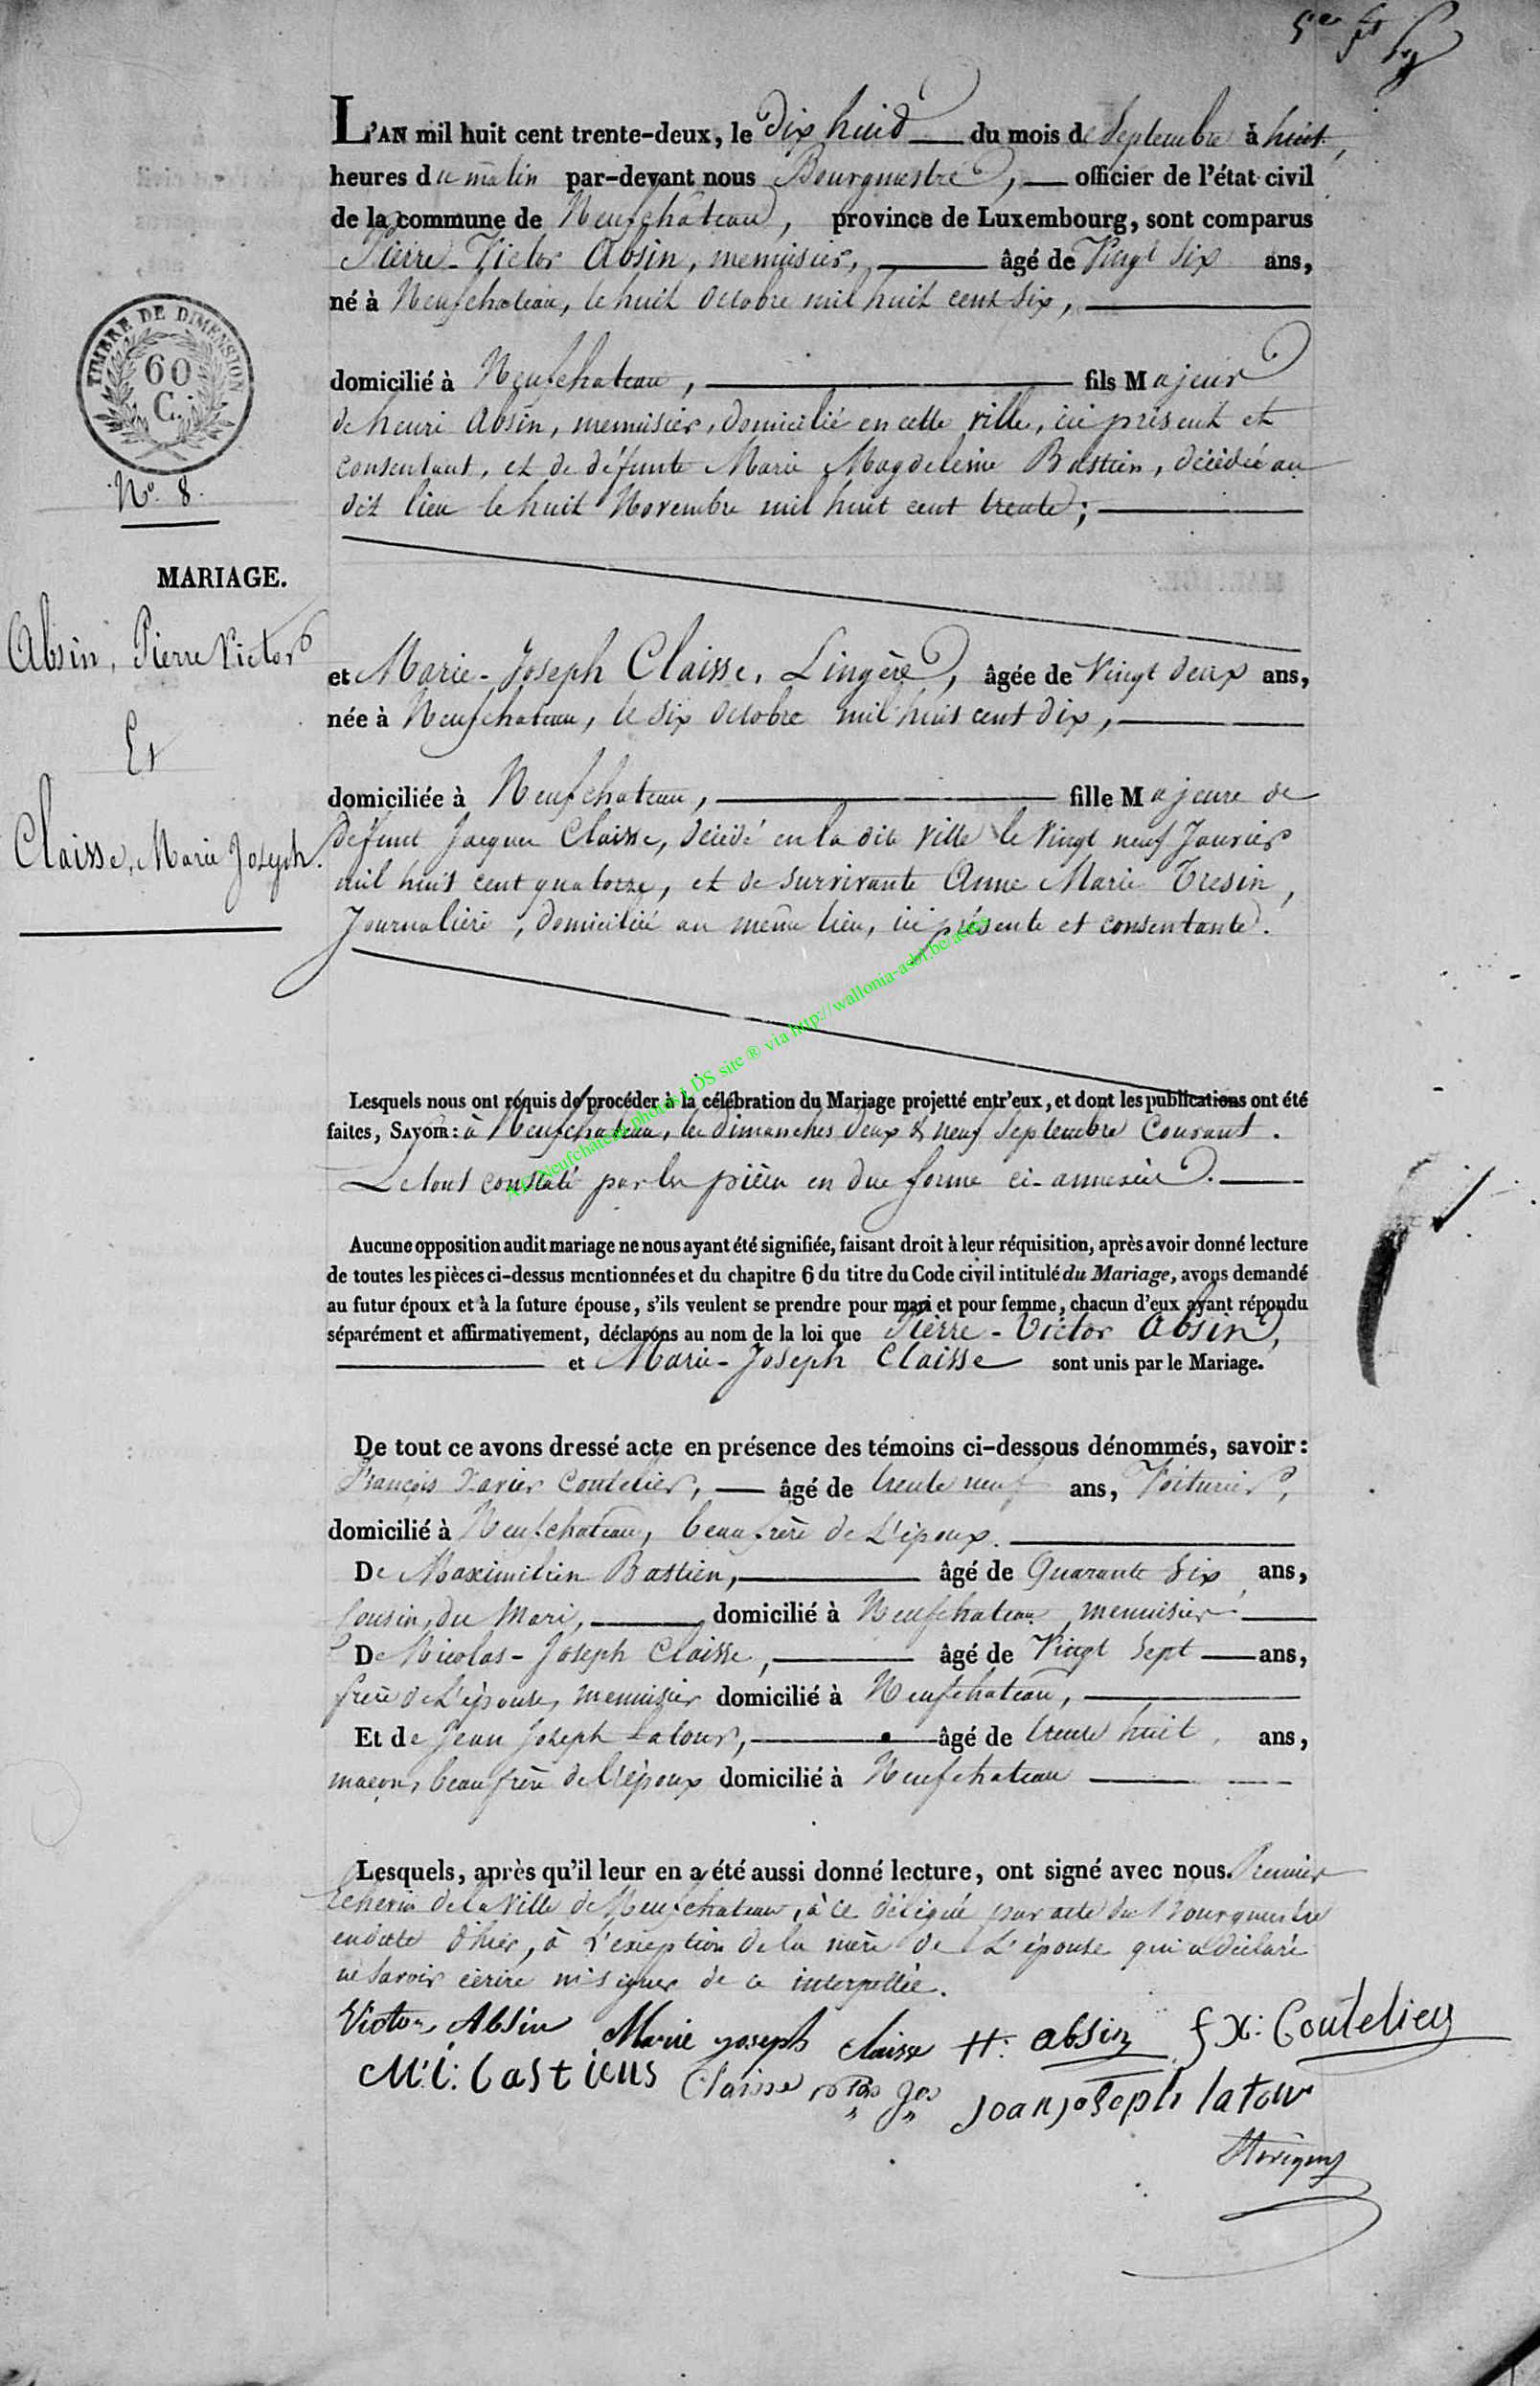 L'AN mil huit cent trente-deux, le dix huit du mois de Septembre à huit
heures du matin par-devant nous Bourgmestre, officier de l'état civil
de la commune de Neufchâteau, province de Luxembourg, sont comparus
Pierre-Victor Absin, menuisier, âgé de Vingt Six ans,
né à Neufchateau, le huit Octobre mil huit cent six,
domicilié à Neufchateau, fils Majeur
de henri Absin, menuisier, domicilié en cette ville, ici présent et
consentant, et de défunte Marie Magdeleine Bastien, décédée au
dit lieu le huit Novembre mil huit cent trente;
TIMBRE DE DIMENSION
60
C.
N°. 8.
MARIAGE.
Absin, Pierre Victor
Et
Claisse, Marie Joseph.
et Marie-Joseph Claisse, Lingère, âgée de Vingt deux ans,
née à Neufchateau, le six Octobre mil huit cent dix,
domiciliée à Neufchateau, fille Majeure de
défunt Jacques Claisse, décédé en la dite ville le vingt neuf Janvier
mil huit cent quatorze, et de survivante Anne Marie Tresin,
Journalière, domiciliée au même lieu, ici présente et consentante.
Lesquels nous ont réquis de procéder à la célébration du Mariage projetté entr'eux, et dont les publications ont été
faites, SAVOIR: à Neufchateau, les dimanches deux & neuf Septembre Courant.
Le tout constaté par les pièces en due forme ci-annexées.
Neufchâteau photos LDS site ® via http://wallonia-asbl.be/
Aucune opposition audit mariage ne nous ayant été signifiée, faisant droit à leur réquisition, après avoir donné lecture
de toutes les pièces ci-dessus mentionnées et du chapitre 6 du titre du Code civil intitulé du Mariage, avons demandé
au futur époux et à la future épouse, s'ils veulent se prendre pour mari et pour femme, chacun d'eux ayant répondu
séparément et affirmativement, déclarons au nom de la loi que Pierre-Victor Absin,
et Marie-Joseph Claisse sont unis par le Mariage.
De tout ce avons dressé acte en présence des témoins ci-dessous dénommés, savoir:
François Xavier Coutelier, âgé de trente neuf ans, Voiturier,
domicilié à Neufchateau, beau frère de L'époux.
De Maximilien Bastien, âgé de Quarante Six ans,
Cousin du Mari, domicilié à Neufchateau, menuisier
De Nicolas-Joseph Claisse, âgé de Vingt Sept ans,
frère de L'épouse, menuisier domicilié à Neufchateau,
Et de Jean Joseph Latour, âgé de trente huit ans,
maçon, beau frère de l'époux domicilié à Neufchateau
Lesquels, après qu'il leur en a été aussi donné lecture, ont signé avec nous. Premier
Echevin de la Ville de Neufchateau, à ce délégué par acte du Bourgmestre
en date d'hier, à L'exception de la mère de L'épouse qui a déclaré
ne savoir écrire ni signer de ce interpellée.
Victor Absin Marie joseph claisse H: absin f X: Coutelier
M: i: bastiens Claisse Jos Joan joseph latour